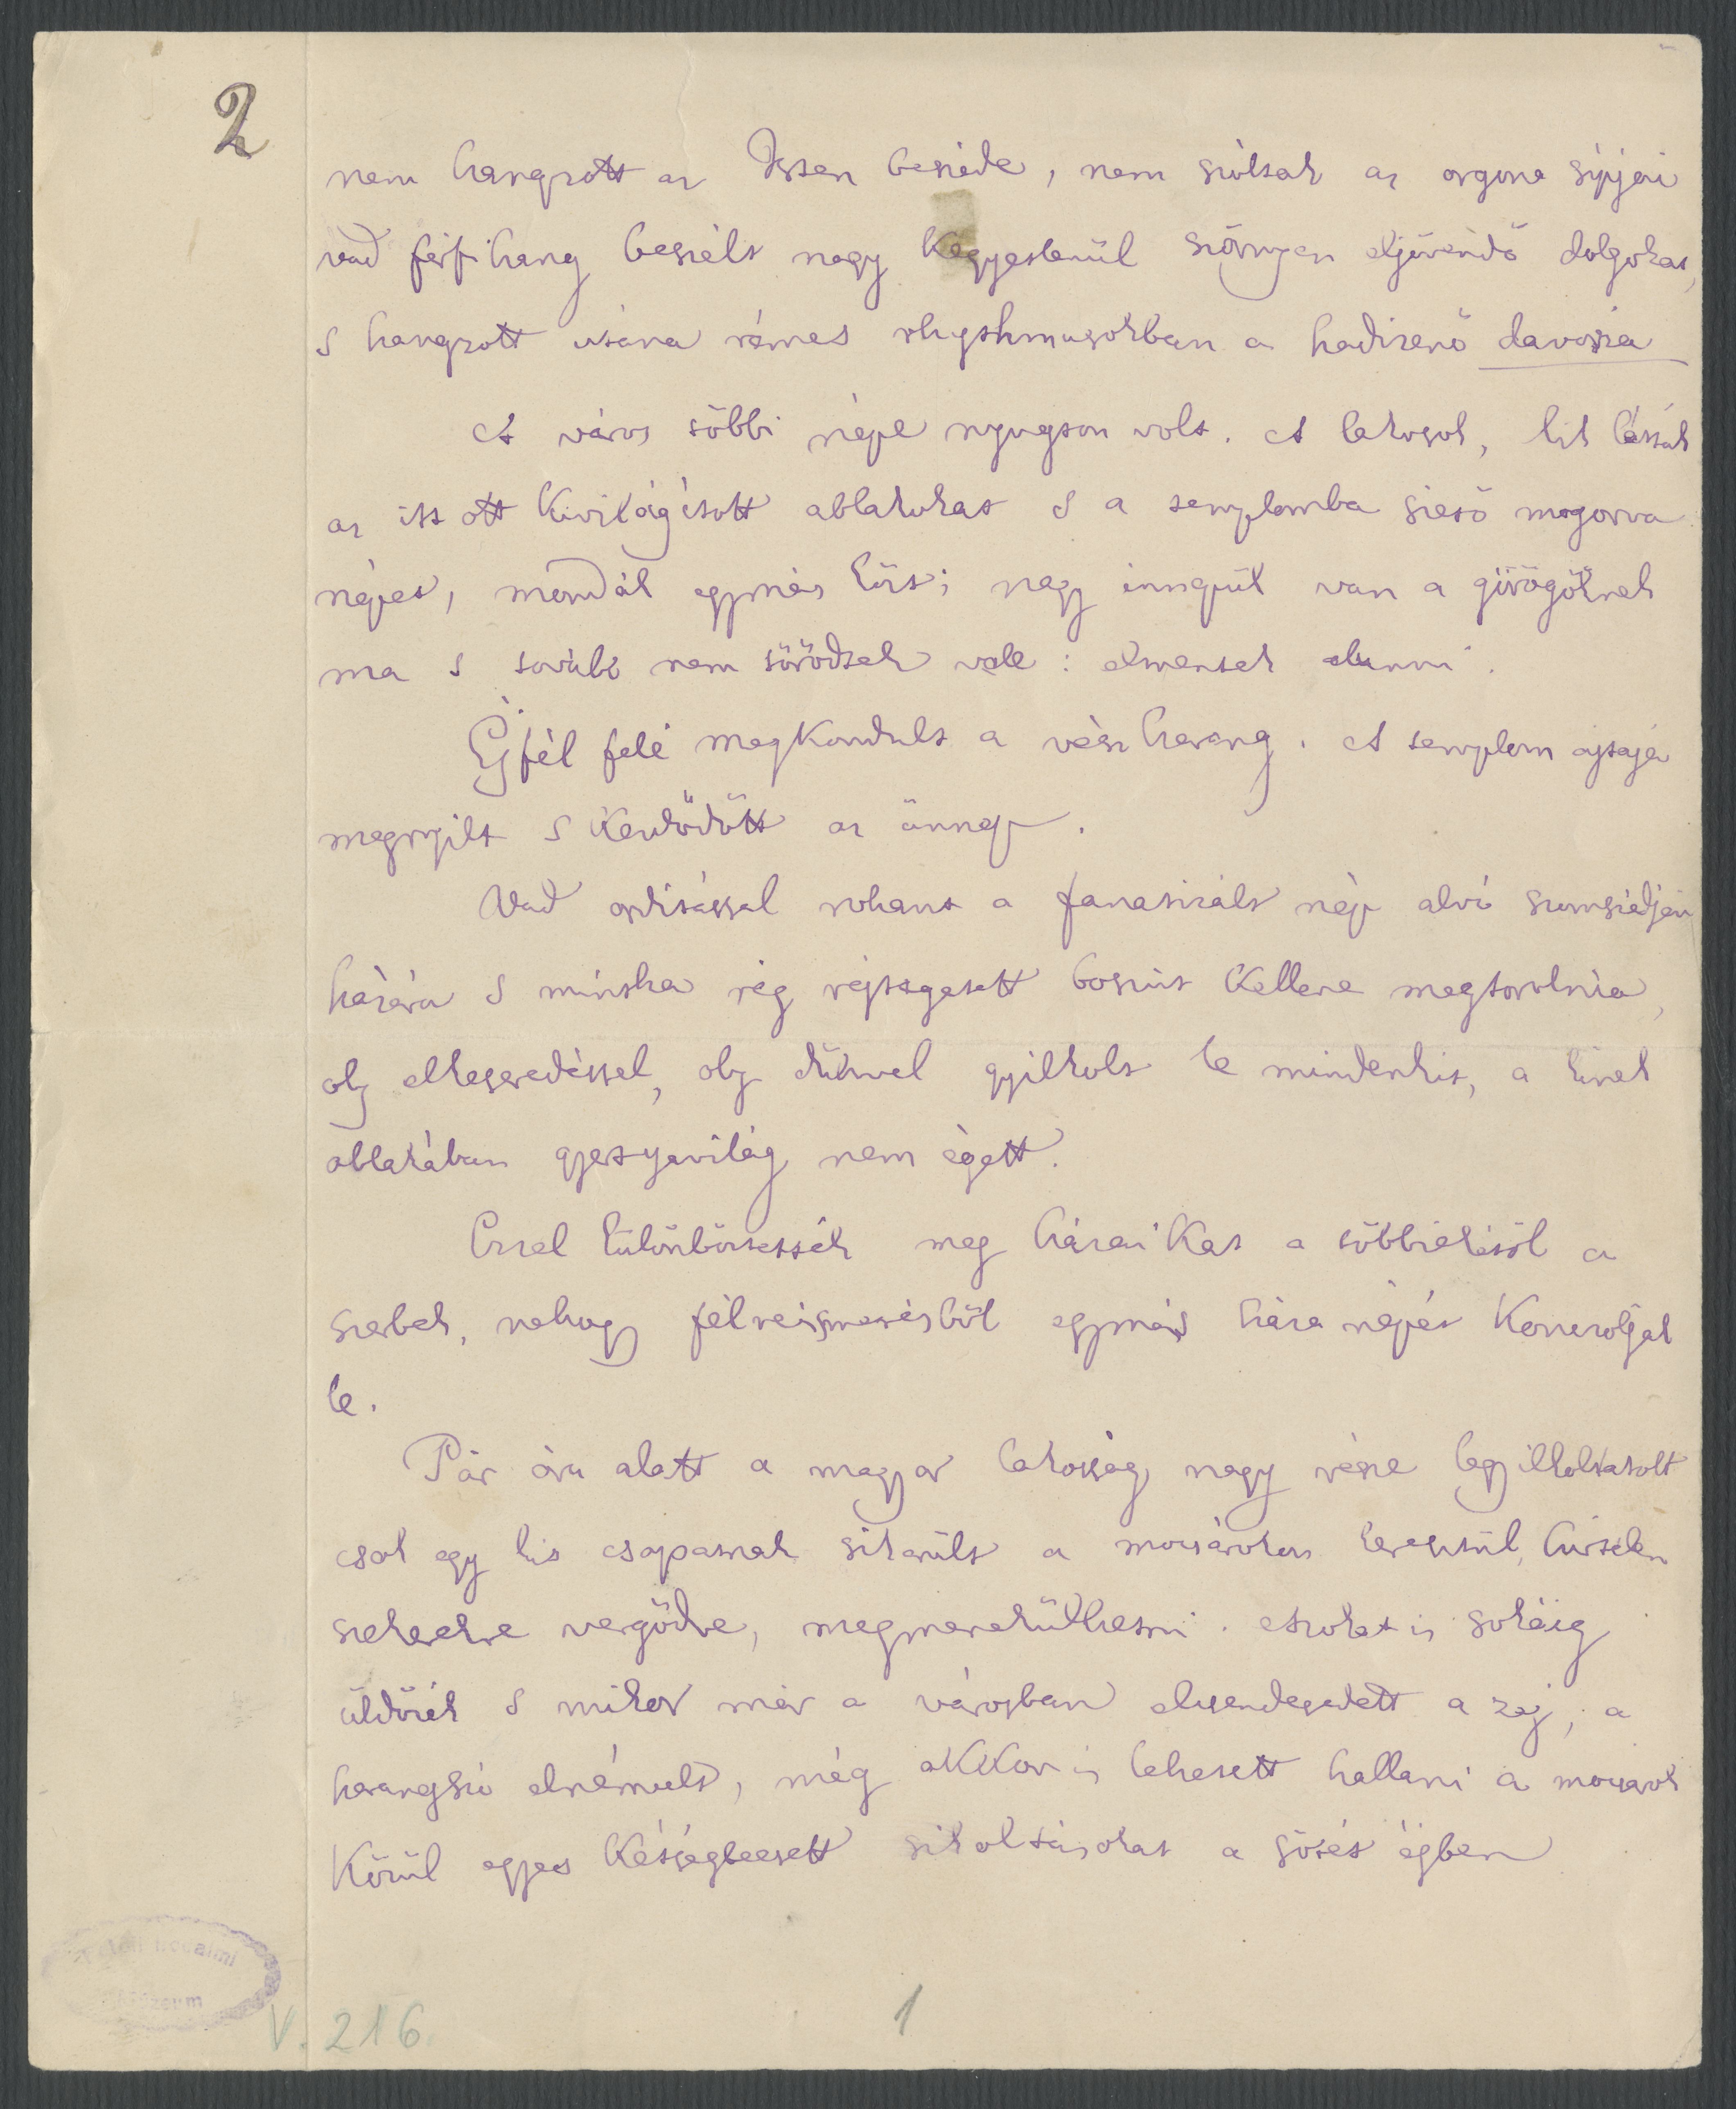 2
nem hangzott az Isten beszéde, nem szóltak az orgona sípjai
vad férfihang beszélt nagy kegyetlenül szörnyen eljövendő dolgokat,
s hangzott utána rémes rhythmusokban a hadizenő davoria
A város többi népe nyugton volt. A lakosok, kik látták
az itt ott kivilágított ablakokat s a templomba siető mogorva
népet, mondák egymás közt; nagy innepük van a görögöknek
ma s tovább nem törődtek vele: elmentek alunni.
Éjfél felé megkondult a vészharang. A templom ajtaja
megnyilt s kezdődött az ünnep.
Vad ordítással rohant a fanatizált nép alvó szomszédjai
házára s mintha rég rejtegetett boszút kellene megtorolnia,
oly elkeseredéssel, oly dühvel gyilkolt le mindenkit, a kinek
ablakában gyertyavilág nem égett.
Ezzel különböztették meg házaikat a többiekétől a
szerbek, nehogy félreismerésből egymás háza népét koncolják
le.
Pár óra alatt a magyar lakosság nagy része legyilkoltatott
csak egy kis csapatnak sikerült a mocsárokon keresztül, hirtelen
szekerekre vergődve, megmenekülhetni. Azokat is sokáig
üldözék s mikor már a városban elcsendesedett a zaj, a
harangszó elnémult, még akkor is lehetett hallani a mocsarok
körül egyes kétségbeesett sikoltásokat a sötét égben
Petőfi Irodalmi
Múzeum
V. 216
1